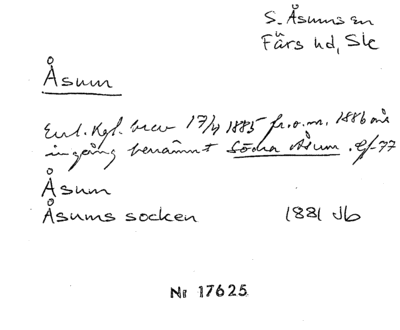 S. Åsums sn
Färs hd, Sk
Åsum
Enl. Kgl. brev 17/4 1885 fr.o.m. 1886 års
ingång benämnt Södra Åsum.
Åsum
Åsums socken 1881 Jb
Nr 17625